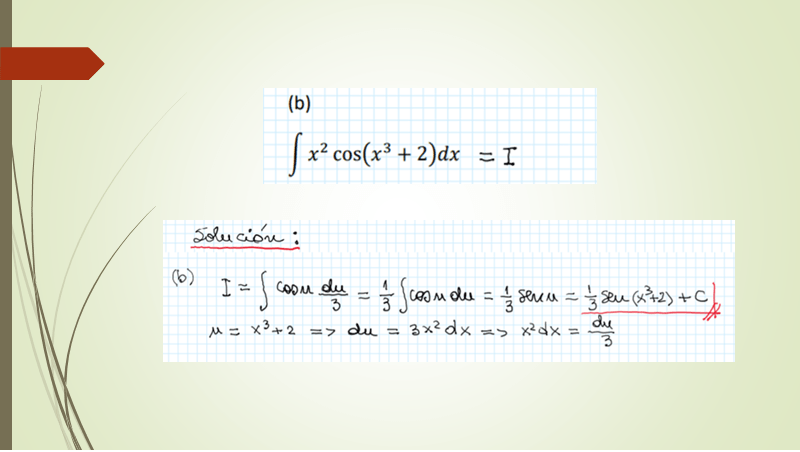 (b)
∫ x² cos(x³ + 2)dx = I
Solución:
(b) I = ∫ cos u du/3 = 1/3 ∫ cos u du = 1/3 sen u = 1/3 sen (x³+2) + C
u = x³+2 => du = 3x² dx => x² dx = du/3